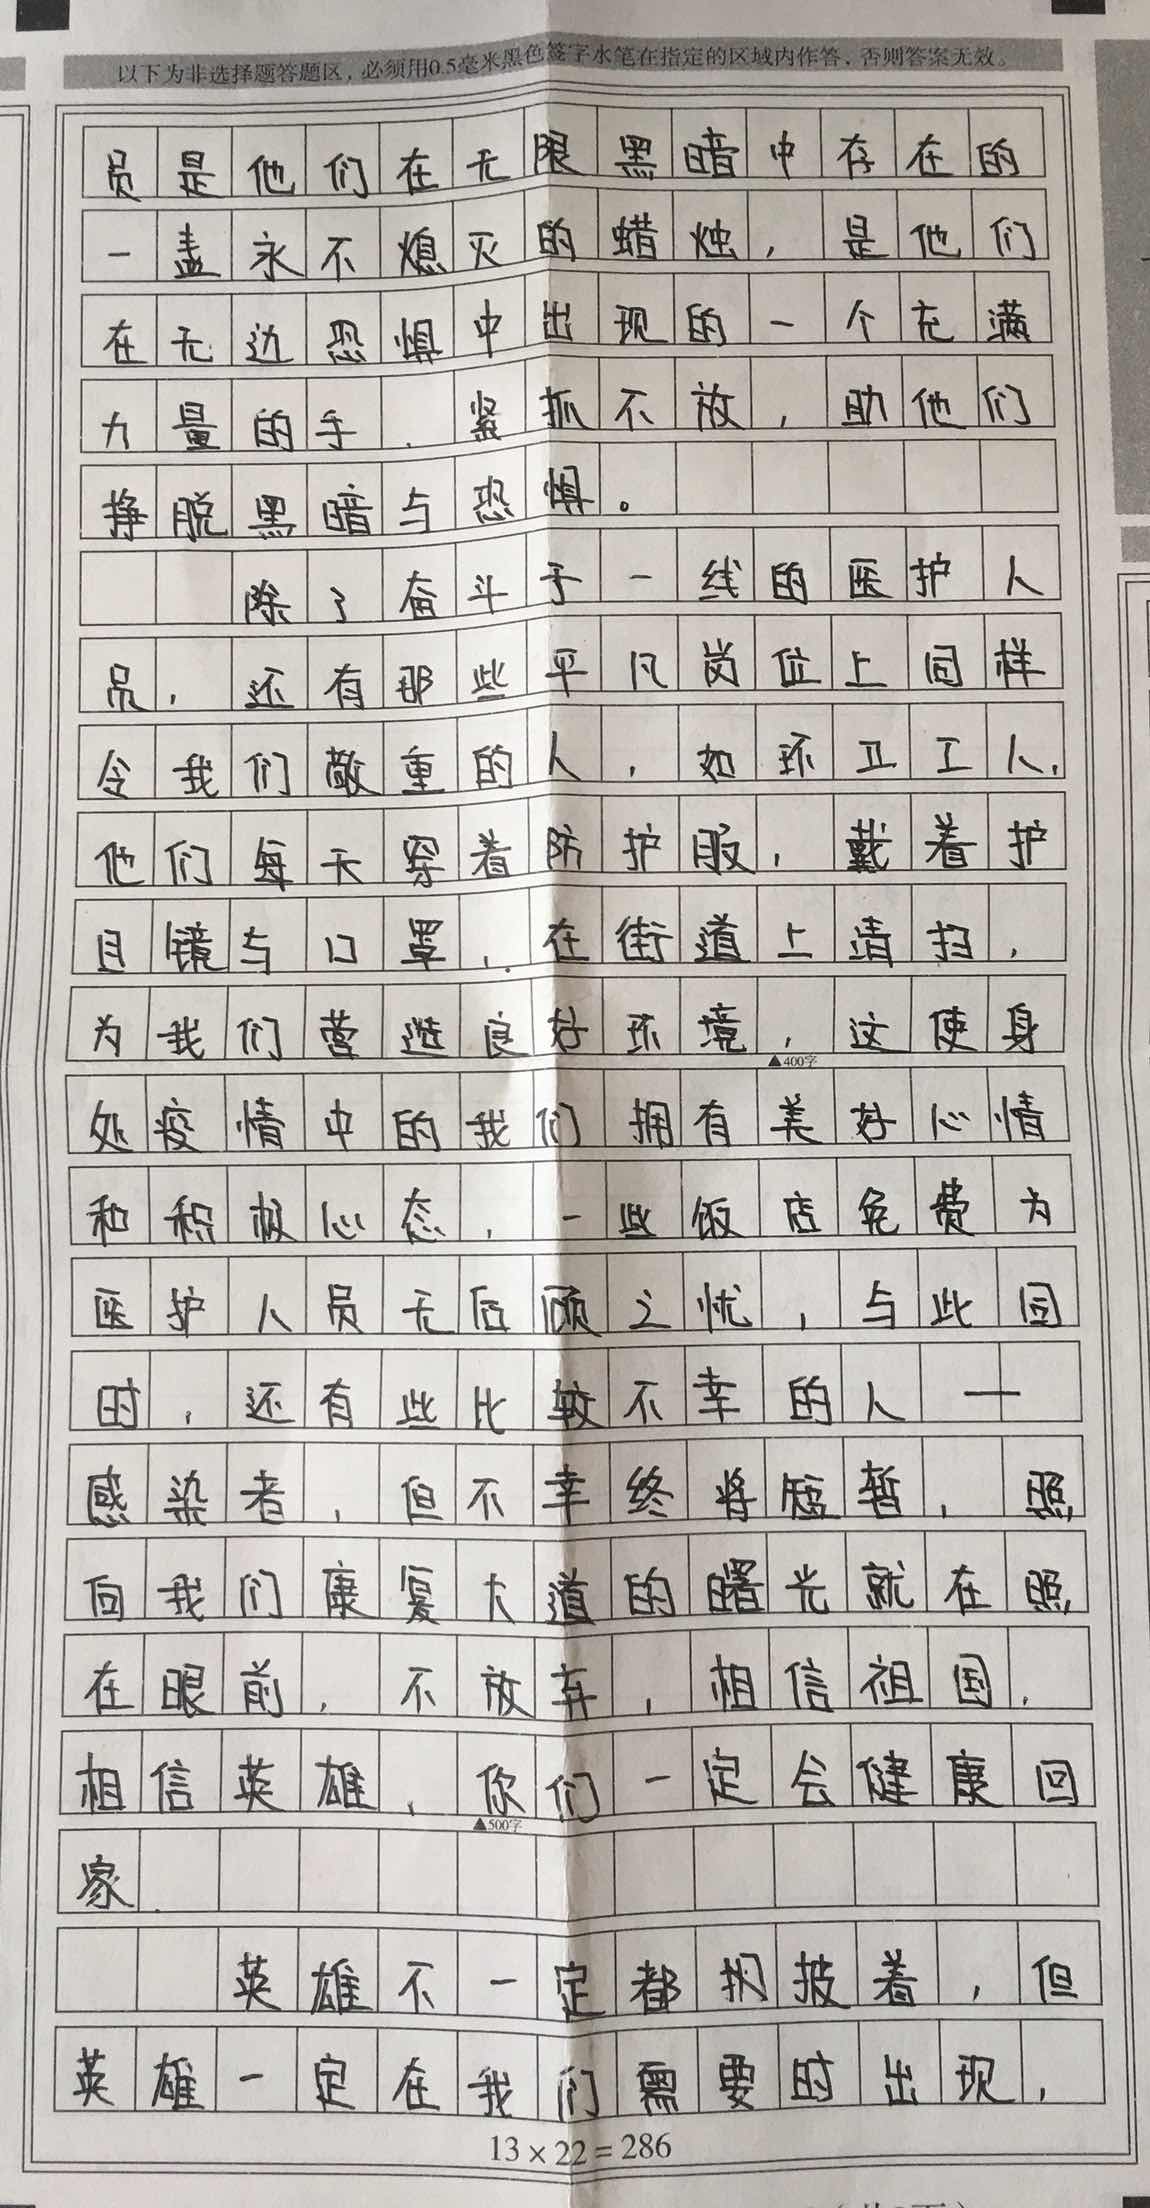 以下为非选择题答题区，必须用0.5毫米黑色签字水笔在指定的区域内作答，否则答案无效。
员是他们在无限黑暗中存在的
一盏永不熄灭的蜡烛，是他们
在无边恐惧中出现的一个充满
力量的手，紧抓不放，助他们
挣脱黑暗与恐惧。
除了奋斗于一线的医护人
员，还有那些平凡岗位上同样
令我们敬重的人，如环卫工人，
他们每天穿着防护服，戴着护
目镜与口罩，在街道上清扫，
为我们营造良好环境，这使身
▲400字
处疫情中的我们拥有美好心情
和积极心态，一些饭店免费为
医护人员无后顾之忧，与此同
时，还有些比较不幸的人——
感染者，但不幸终将短暂，照
向我们康复大道的曙光就在照
在眼前，不放弃，相信祖国，
相信英雄，你们一定会健康回
▲500字
家.
英雄不一定都披着，但
英雄一定在我们需要时出现，
13×22=286